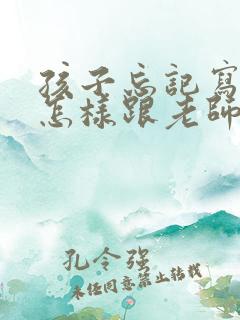 孩子忘記寫
怎樣跟老師
孔令强
未经同意禁止转载